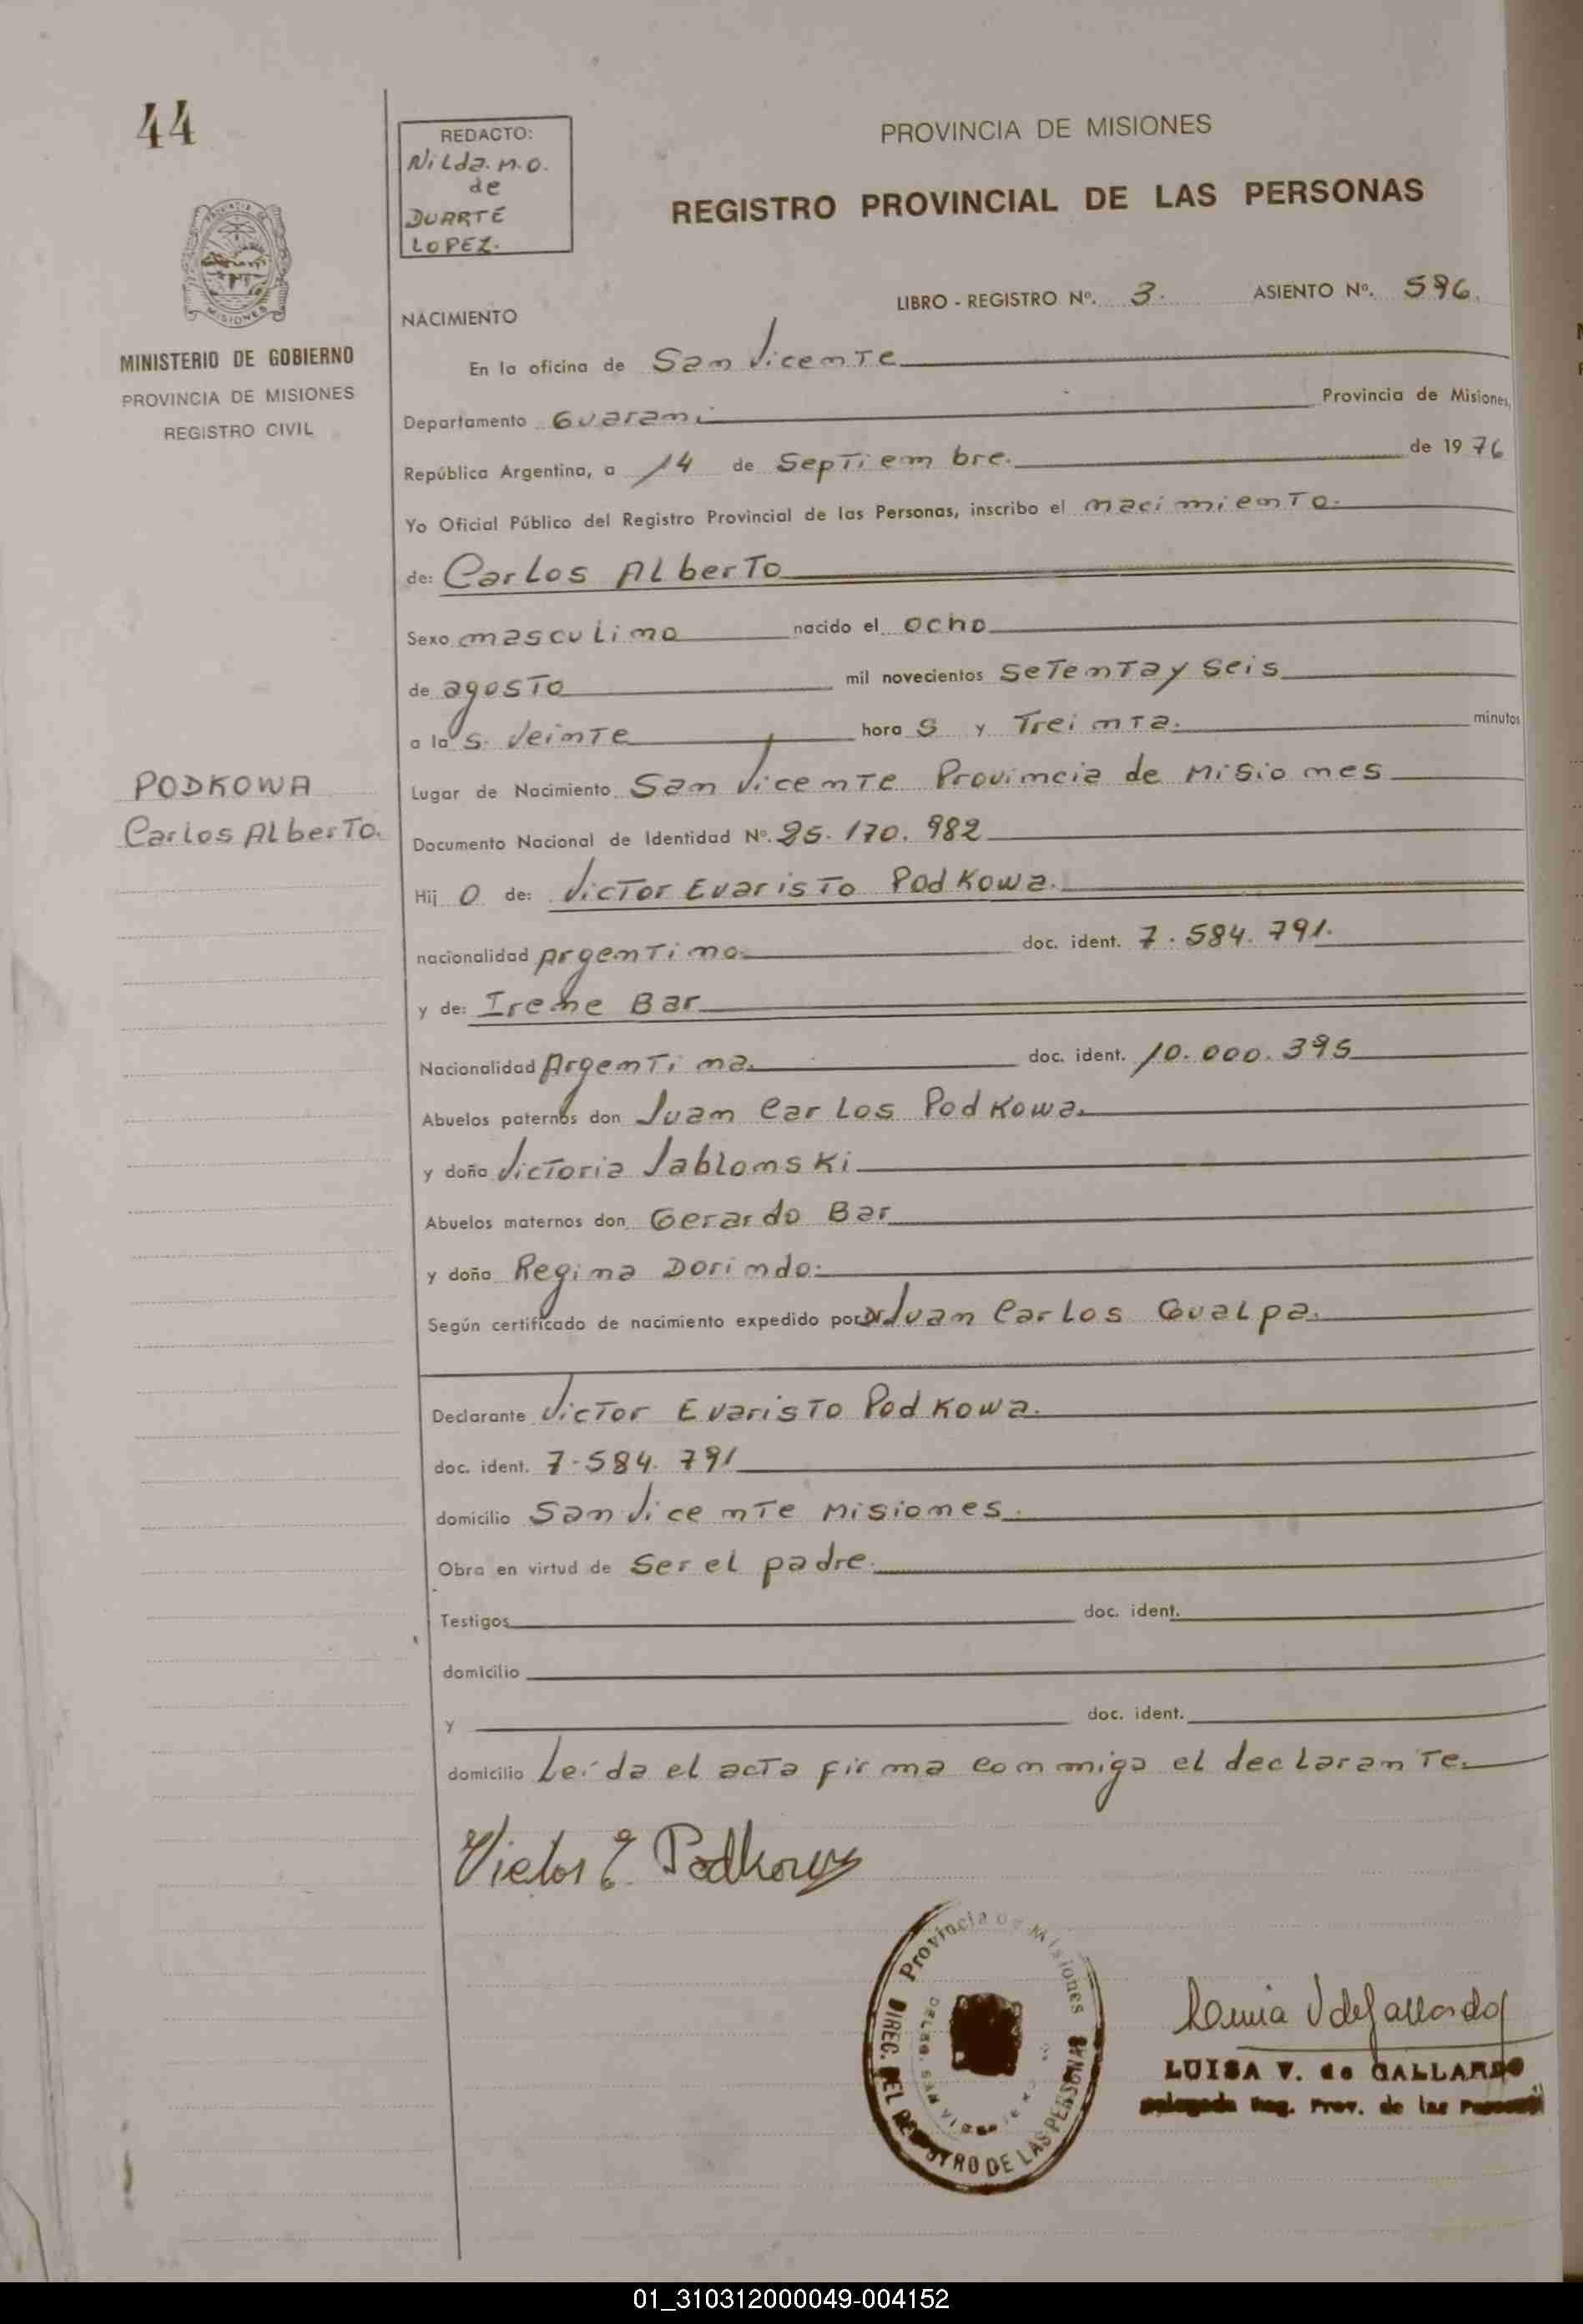 44
REDACTO:
Nilda. M. O.
de
DUARTE
LOPEZ.
PROVINCIA DE MISIONES
REGISTRO PROVINCIAL DE LAS PERSONAS
MINISTERIO DE GOBIERNO
PROVINCIA DE MISIONES
REGISTRO CIVIL
LIBRO - REGISTRO Nº. 3. ASIENTO Nº. 596.
NACIMIENTO
En la oficina de San Vicente
Departamento Guaraní Provincia de Misiones,
República Argentina, a 14 de Septiembre. de 1976
Yo Oficial Público del Registro Provincial de las Personas, inscribo el nacimiento.
de: Carlos Alberto
Sexo masculino nacido el ocho
de agosto mil novecientos setenta y seis
a las. Veinte horas y Treinta. minutos
PODKOWA
Carlos Alberto.
Lugar de Nacimiento San Vicente Provincia de Misiones
Documento Nacional de Identidad Nº. 25.170.982
Hijo de: Victor Evaristo Podkowa.
nacionalidad argentino. doc. ident. 7.584.791.
y de: Irene Bar
Nacionalidad Argentina. doc. ident. 10.000.395
Abuelos paternos don Juan Carlos Podkowa.
y doña Victoria Jablonski
Abuelos maternos don Gerardo Bar
y doña Regina Dorindo.
Según certificado de nacimiento expedido por Dr Juan Carlos Gualpa.
Declarante Victor Evaristo Podkowa.
doc. ident. 7.584.791
domicilio San Vicente Misiones.
Obra en virtud de ser el padre.
Testigos doc. ident.
domicilio
y doc. ident.
domicilio Leída el acta firma conmigo el declarante.
Victor E. Podkowa
Provincia de Misiones
DIREC. DEL REGISTRO DE LAS PERSONAS
LUISA V. de GALLARDO
Delegada Reg. Prov. de las Personas
01_310312000049-004152